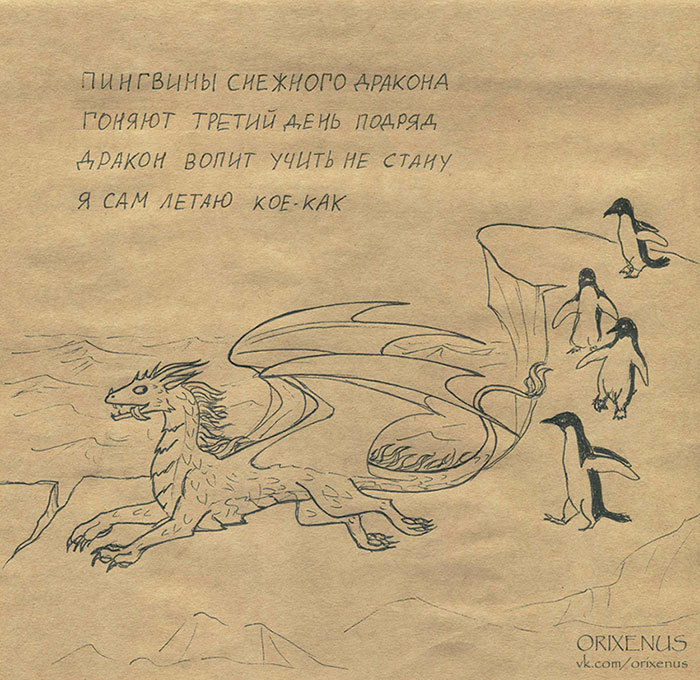 ПИНГВИНЫ СНЕЖНОГО ДРАКОНА
ГОНЯЮТ ТРЕТИЙ ДЕНЬ ПОДРЯД
ДРАКОН ВОПИТ УЧИТЬ НЕ СТАНУ
Я САМ ЛЕТАЮ КОЕ-КАК
ORIXENUS
vk.com/orixenus